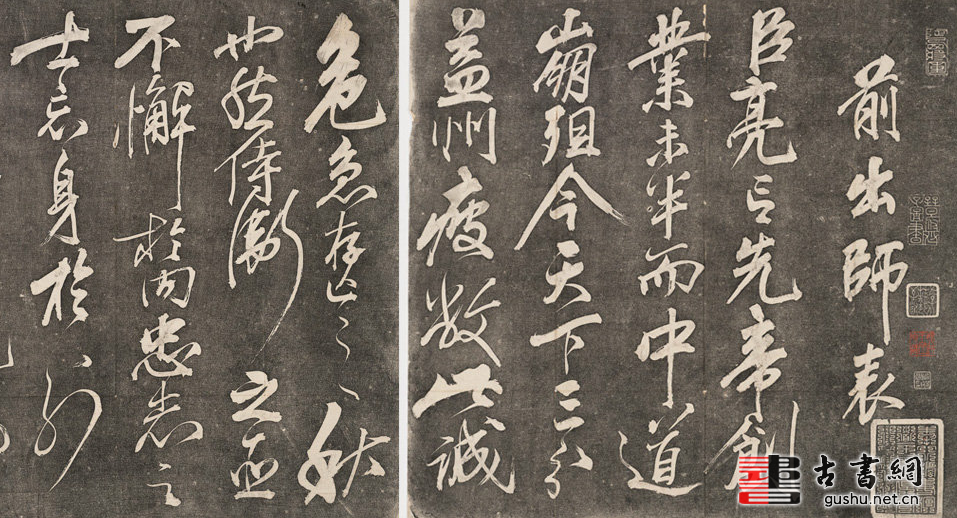 前出師表
臣亮言先帝創
業未半而中道
崩殂今天下三分
益州疲敝此誠
危急存亡之秋
也然侍衛之臣
不懈於内忠志之
士忘身於外
古書網
gushu.net.cn